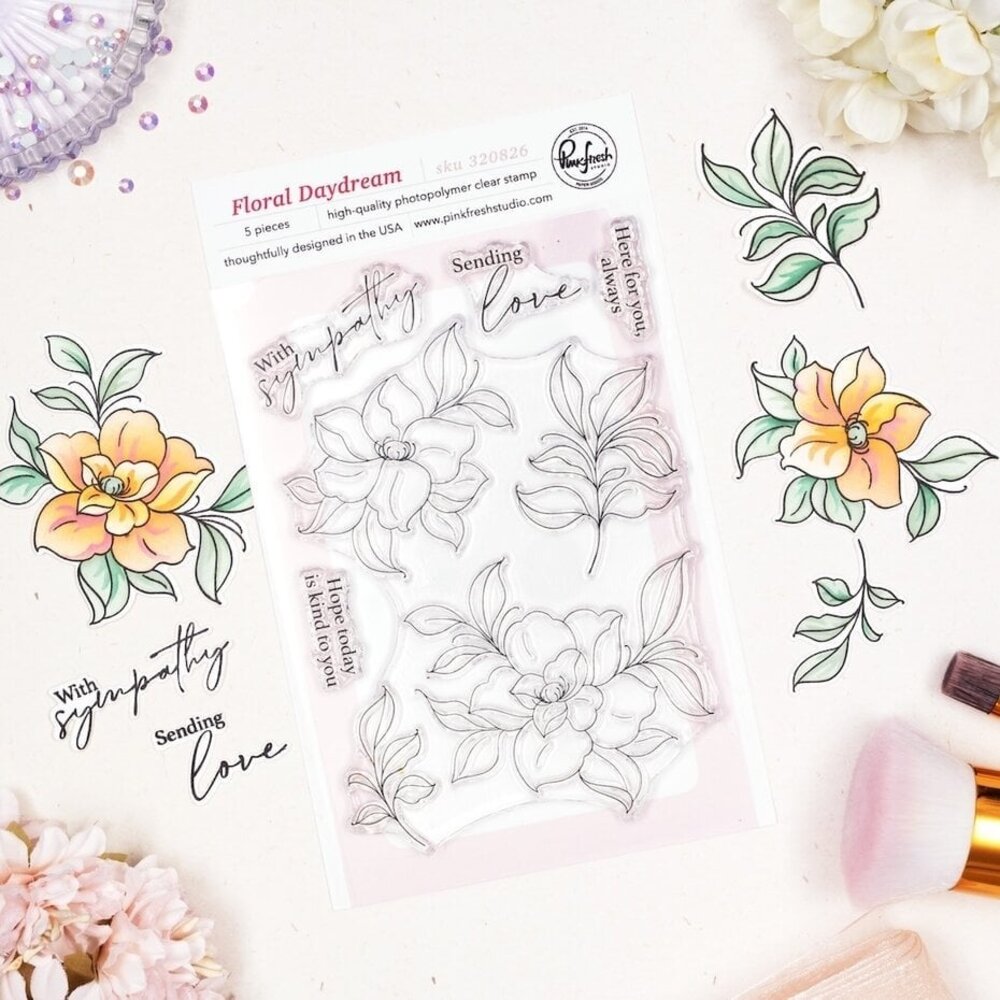 Floral Daydream
sku 320826
5 pieces
high-quality photopolymer clear stamp
thoughtfully designed in the USA
www.pinkfreshstudio.com
EST. 2014
Pinkfresh
STUDIO
With
sympathy
Sending
love
Here for you,
always
Hope today
is kind to you
With
sympathy
Sending
love